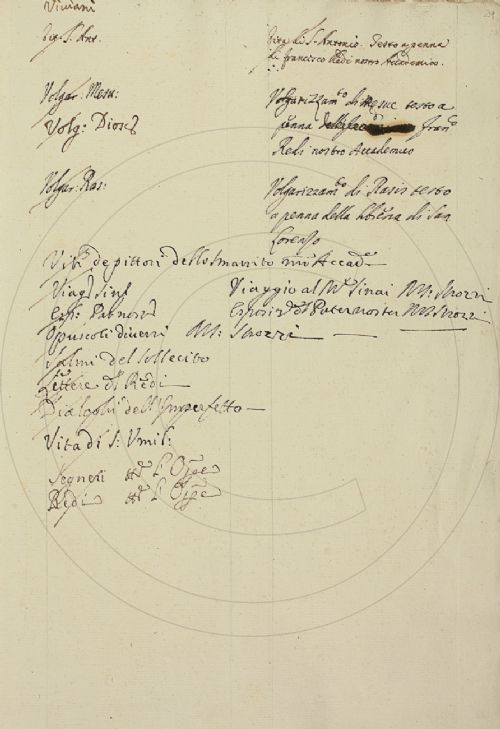 Viviani
Vit. S. Ant.
Vita di S. Antonio. Testo a penna
di francisco Redi nostro Accademico.
Volgar. Mesu:
Volgarizzam.to di Mesue testo a
penna fran.co
Redi nostro Accademico
Volg: Diosc
Volgar. Ras:
Volgarizzam.to di Rasis testo
a penna della libreria di San
Lorenzo
Vit. de pittori dello Smarrito nro Accad.
Viag. Sin. Viaggio al M.te Sinai MS: Strozzi
Esp: Patnost Esposiz. del Paternoster MS Strozzi
Opuscoli diversi MS: Strozzi
Salmi del Sollecito
Lettere del Redi
Dialoghi dell'Imperfetto
Vita di S: Umil:
Segneri
Redi